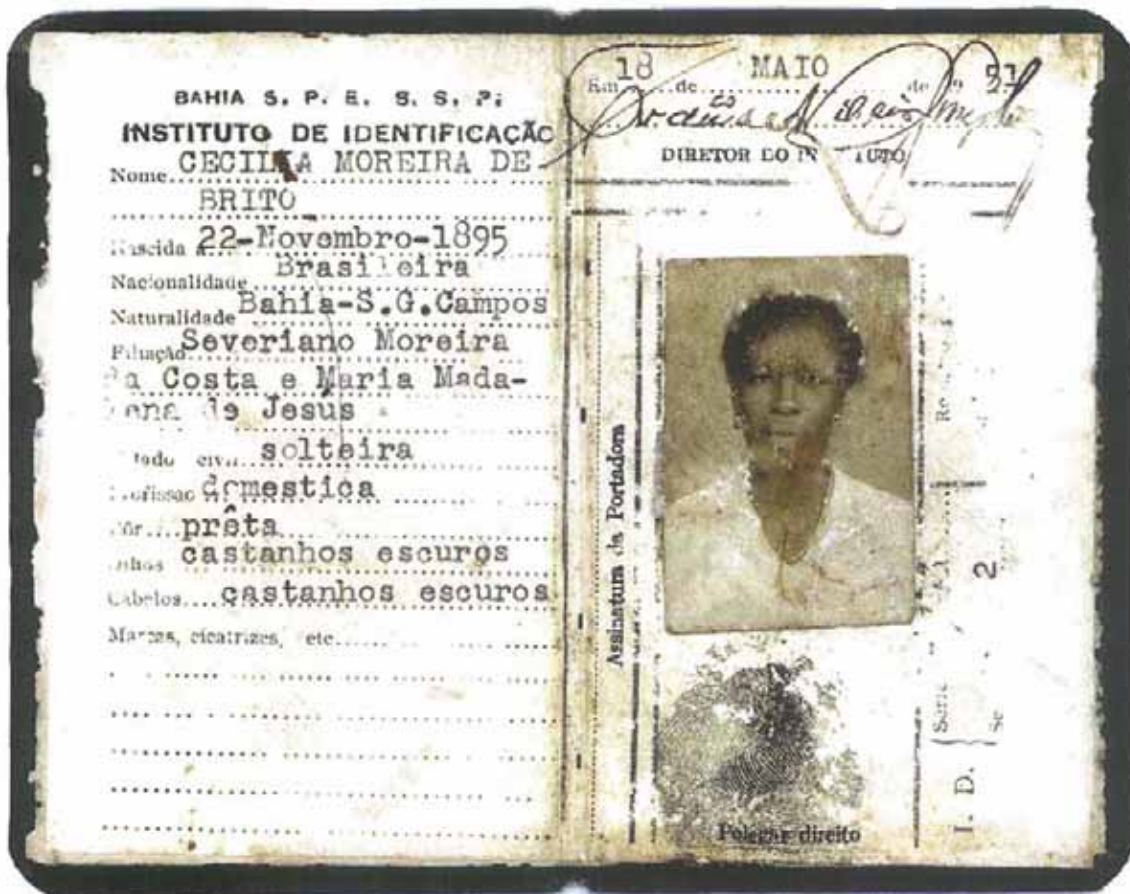 BAHIA S. P. E. S. S. P.
INSTITUTO DE IDENTIFICAÇÃO
Nome CECILIA MOREIRA DE
BRITO
Nascida 22-Novembro-1895
Nacionalidade Brasileira
Naturalidade Bahia-S.G.Campos
Filiação Severiano Moreira
da Costa e Maria Mada-
lena de Jesus
Estado civil solteira
Profissão domestica
Côr prêta
Olhos castanhos escuros
Cabelos castanhos escuros
Marcas, cicatrizes, etc
Em 18 de MAIO de 19 51
DIRETOR DO INSTITUTO
Assinatura da Portadora
Polegar direito
I. D.
Série
2